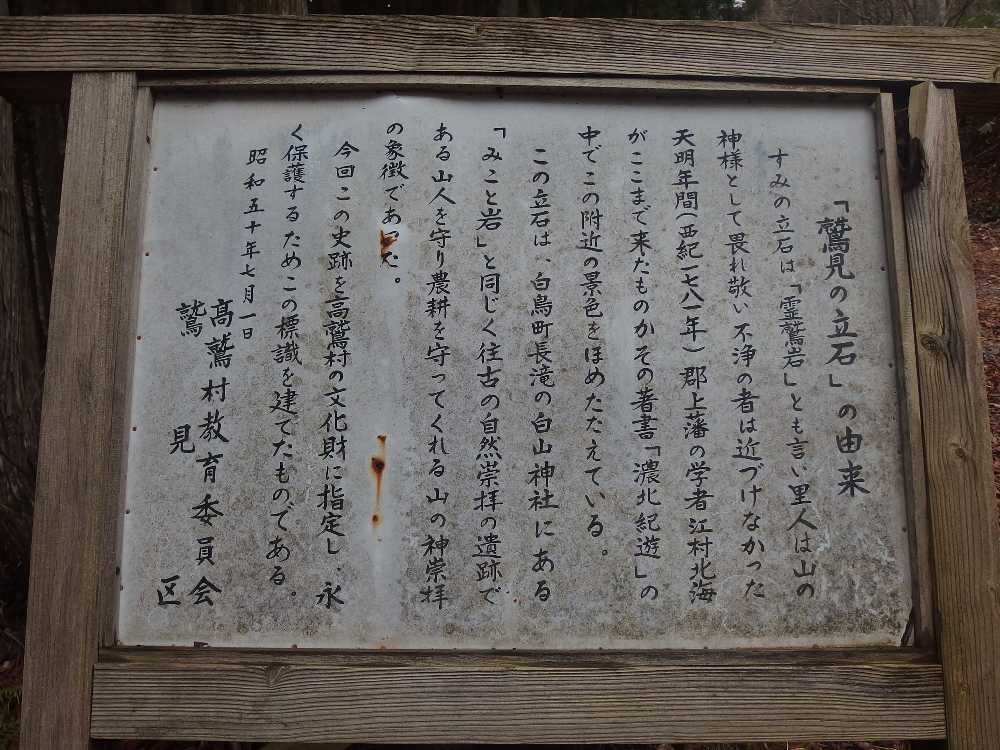 「鷲見の立石」の由来
すみの立石は「霊鷲岩」とも言い里人は山の
神様として畏れ敬い不浄の者は近づけなかった
天明年間(西紀一七八一年)郡上藩の学者江村北海
がここまで来たものかその著書「濃北紀遊」の
中でこの附近の景色をほめたたえている。
この立石は、白鳥町長滝の白山神社にある
「みこと岩」と同じく往古の自然崇拝の遺跡で
ある山人を守り農耕を守ってくれる山の神崇拝
の象徴であった。
今回この史跡を高鷲村の文化財に指定し、永
く保護するためこの標識を建てたものである。
昭和五十年七月一日
高鷲村教育委員会
鷲見区